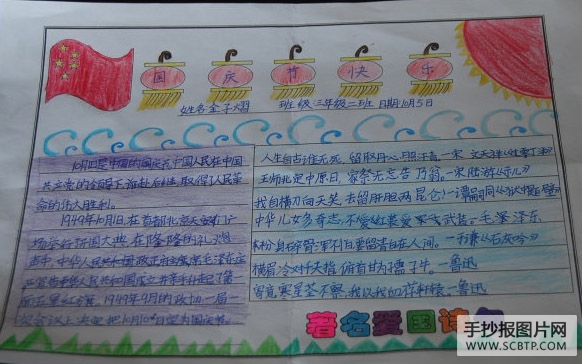 国庆节快乐
姓名金子熠 班级三年级二班 日期10月5日
10月1日是中国的国庆节中国人民在中国
共产党的领导下前赴后继,取得了人民革
命的伟大胜利。
1949年10月1日,在首都北京天安门广
场举行开国大典,在隆隆的礼炮
声中,中华人民共和国
宣告中华人民共和国成立并亲手升起了第
一面五星红旗。1949年9月的政协一届一
次会议上决定把10月1日定为国庆节。
人生自古谁无死,留取丹心照汗青。—宋 文天祥
王师北定中原日,家祭无忘告乃翁。—宋 陆游《示儿》
我自横刀向天笑,去留肝胆两昆仑!—谭嗣同
中华儿女多奇志,不爱红装爱武装—毛泽东
要留清白在人间。—于谦《石灰吟》
横眉冷对千夫指,俯首甘为孺子牛。—鲁迅
寄意寒星荃不察,我以我血荐轩辕。—鲁迅
著名爱国诗句
手抄报图片网
WWW.SCBTP.COM